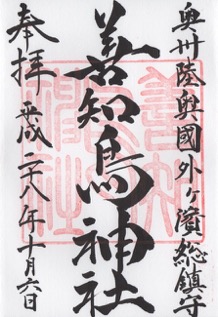 奥州陸奥國外ヶ濱総鎮守
善知鳥神社
奉拝
平成二十八年十月六日